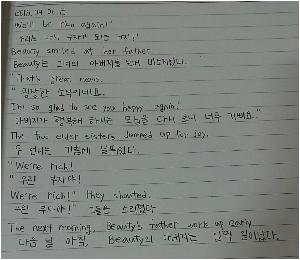 We'll be rich again!"
우리는 다시 부자가 되는 거야!"
Beauty smiled at her father.
Beauty는 그녀의 아버지를 보며 미소지었다.
"That's great news.
"굉장한 소식이네요.
I'm so glad to see you happy again!
아버지가 행복해 하시는 모습을 다시 보니 너무 기뻐요."
The two elder sisters jumped up for joy.
두 언니는 기쁨에
"We're rich!
"우린 부자야!
We're rich!" they shouted.
우린 부자야!" 그들은 소리쳤다.
The next morning, Beauty's father woke up early.
다음 날 아침, Beauty의 아버지는 일찍 일어났다.